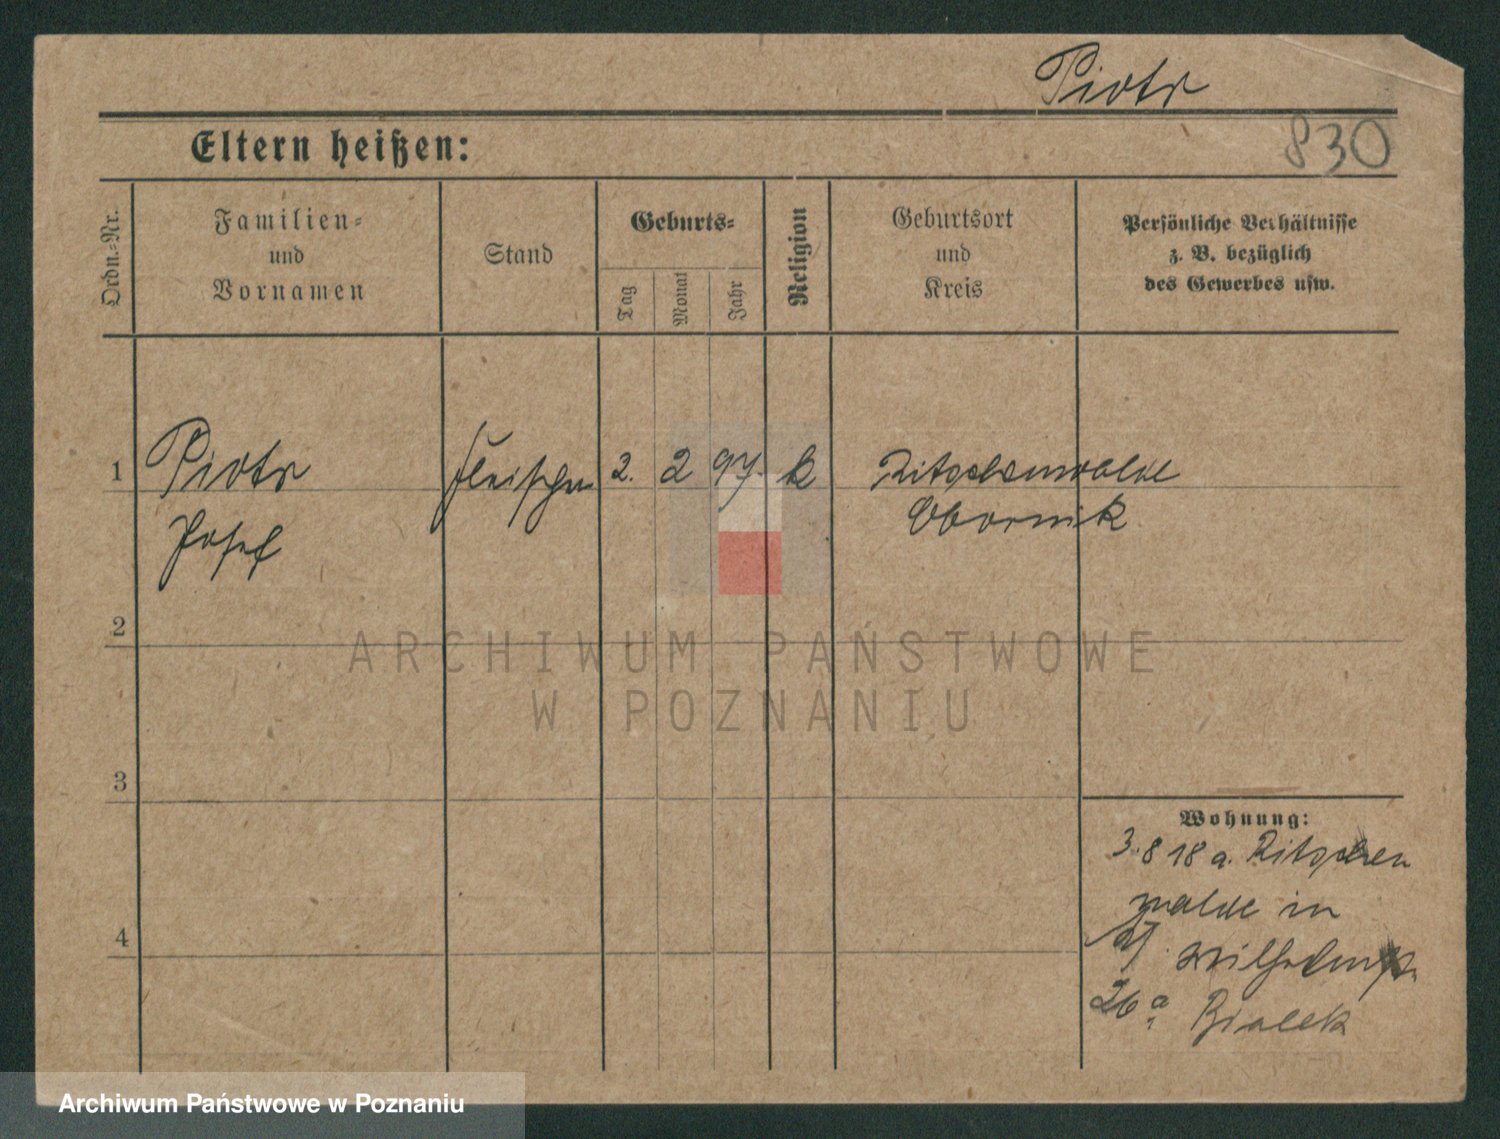 Piotr
830
Eltern heißen:
Ordn.-Nr.
Familien-
und
Vornamen
Stand
Geburts-
Tag
Monat
Jahr
Religion
Geburtsort
und
Kreis
Persönliche Verhältnisse
z. B. bezüglich
des Gewerbes usw.
1 Piotr Fleischer 2. 2 97. k Ritschenwalde
Josef Obornik
2
3
4
Wohnung:
3.8 18 a. Ritschen
walde in
Wilhelmstr.
26a Bialek
ARCHIWUM PAŃSTWOWE
W POZNANIU
Archiwum Państwowe w Poznaniu